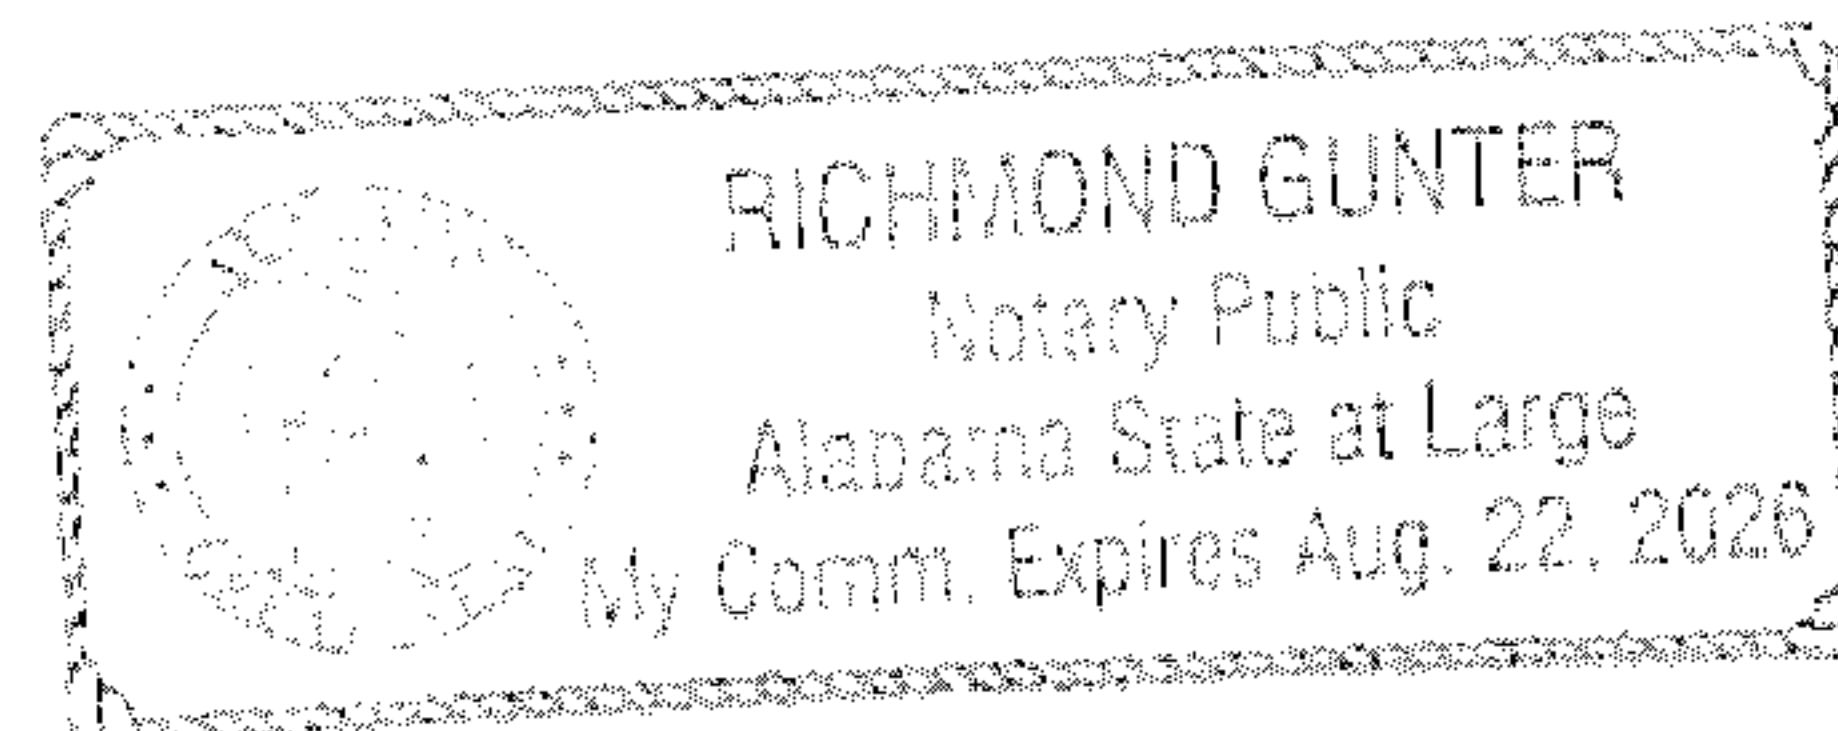 RICHMOND GUNTER
Notary Public
Alabama State at Large
My Comm. Expires Aug. 22, 2026